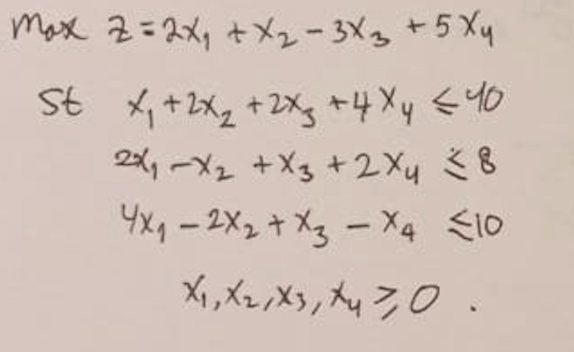 Max Z = 2x₁ + x₂ - 3x₃ + 5x₄
St x₁ + 2x₂ + 2x₃ + 4x₄ ≤ 40
2x₁ - x₂ + x₃ + 2x₄ ≤ 8
4x₁ - 2x₂ + x₃ - x₄ ≤ 10
x₁, x₂, x₃, x₄ ≥ 0 .